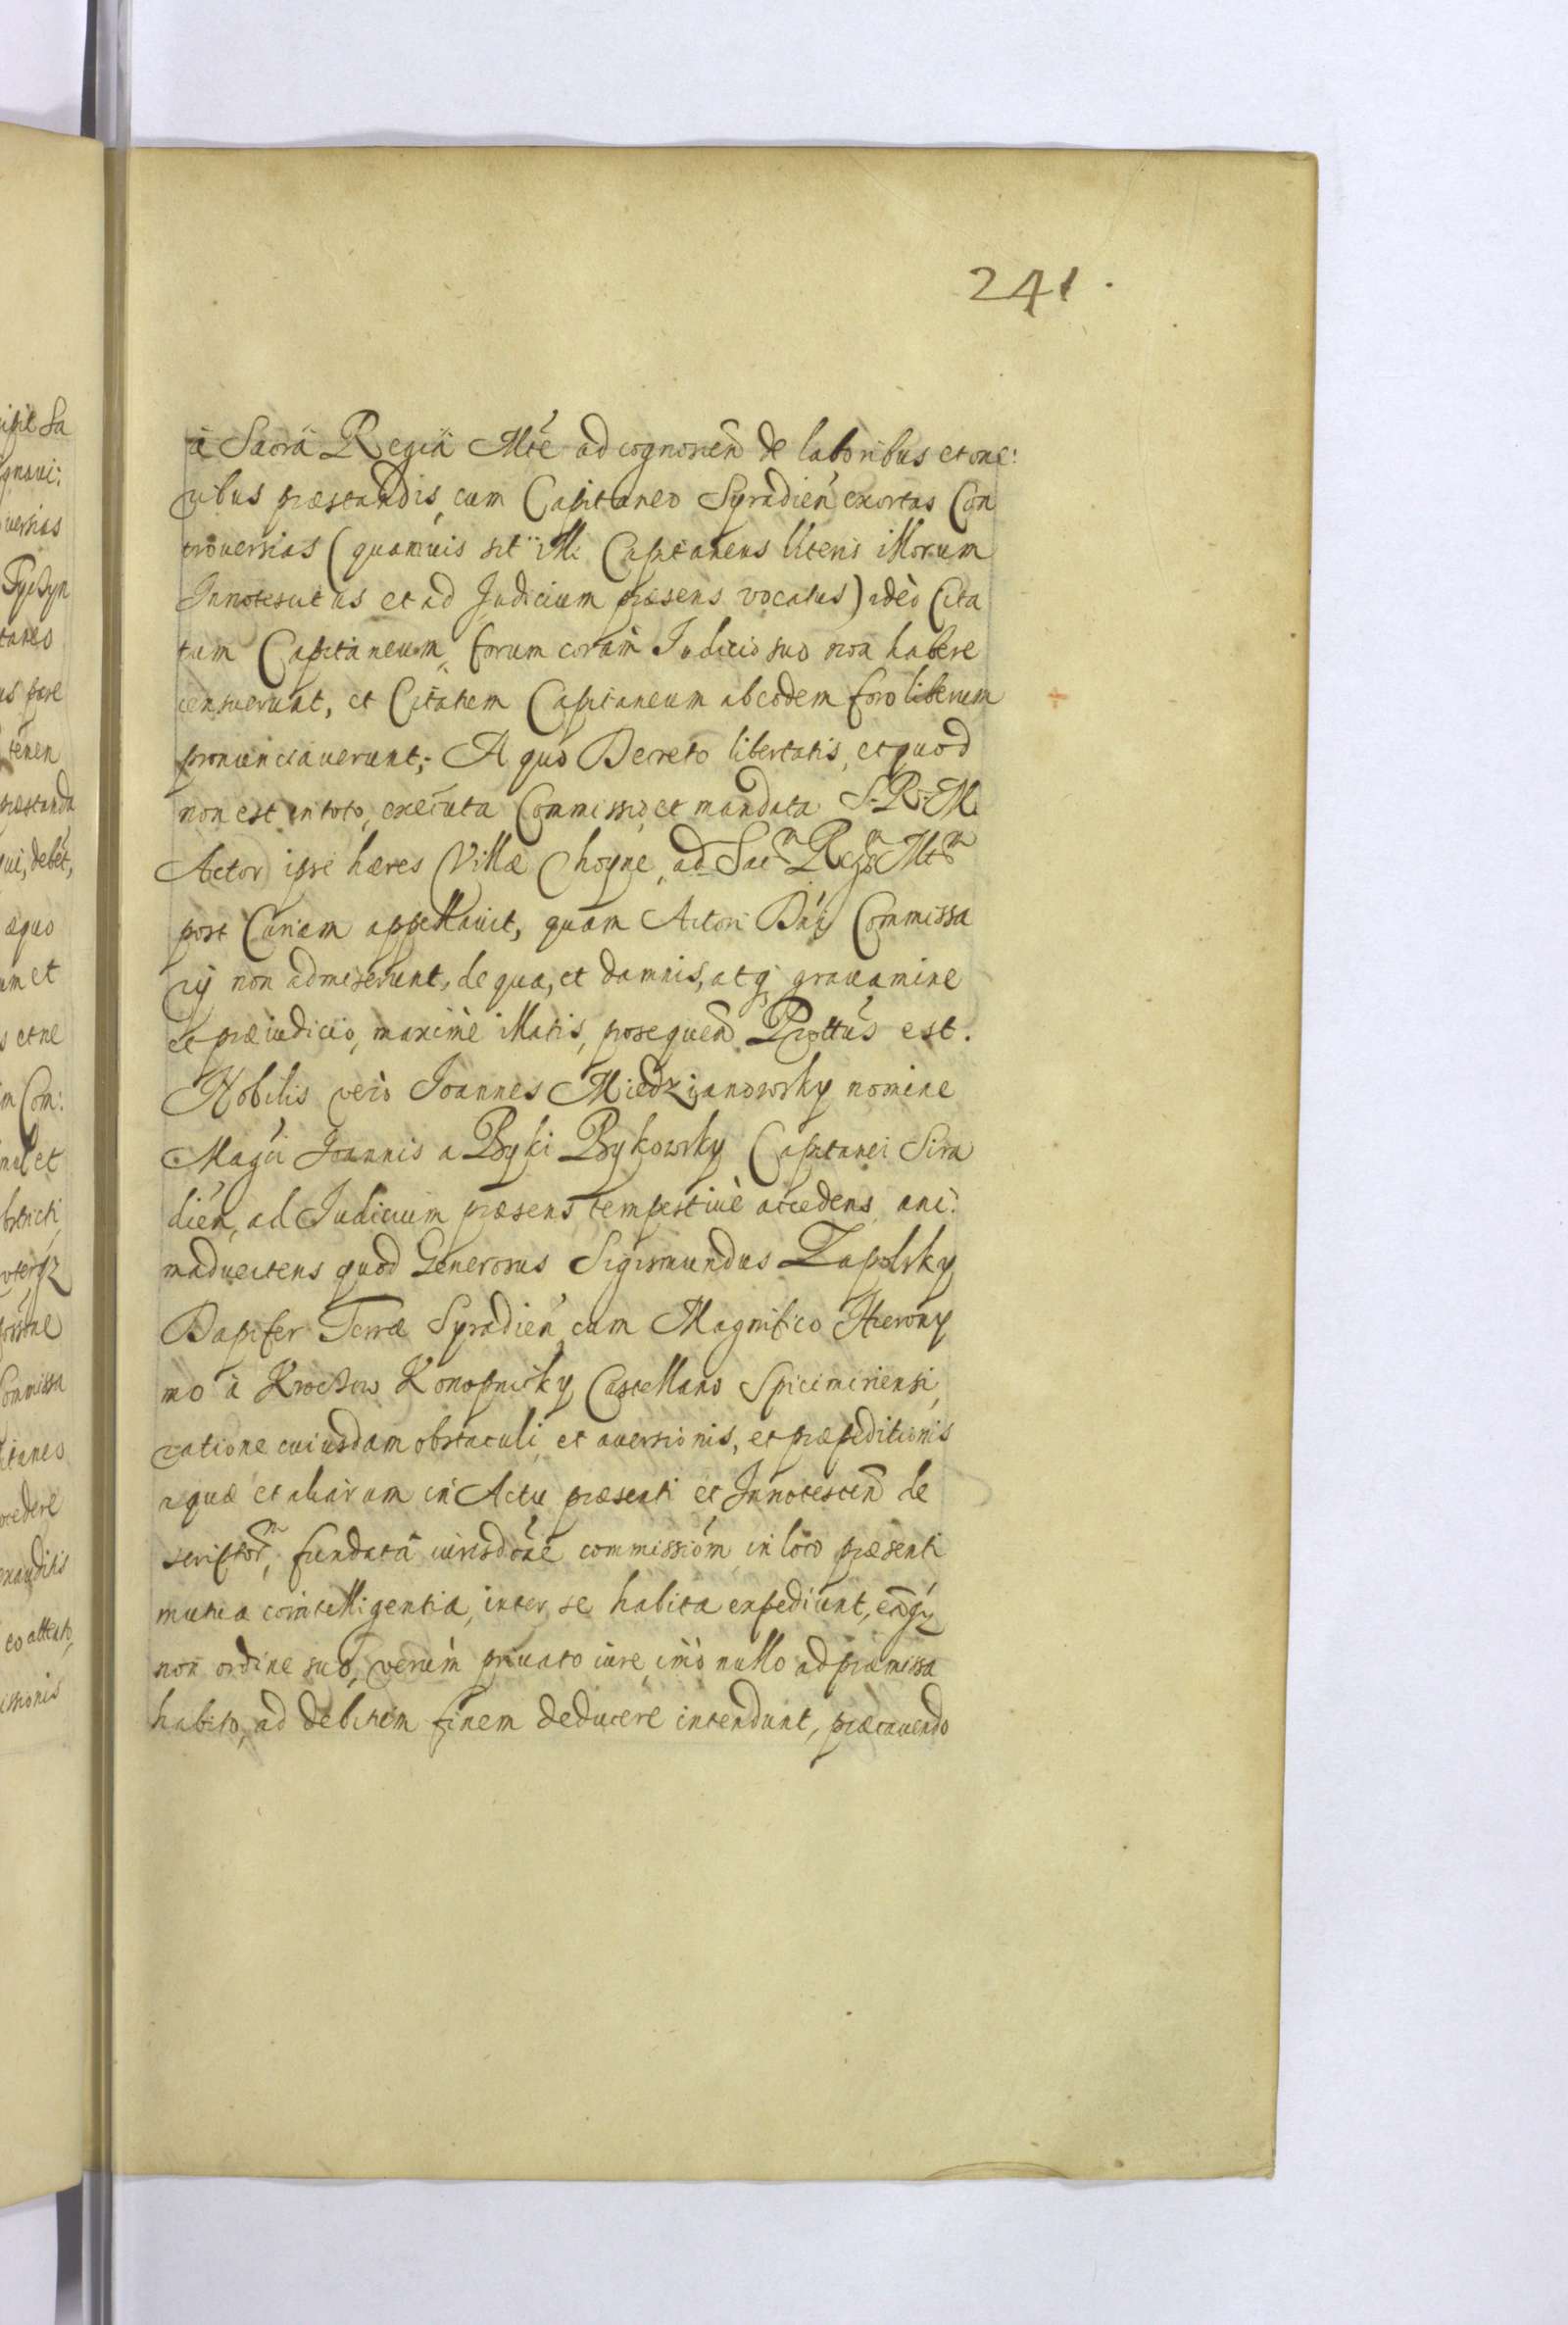 241.
à Sacrâ Regiâ Mte ad cognoscen̄ de laboribus et one:
ribus præstandis, cum Capitaneo Syradień exortas Con
trouersias (quamuis sit ille Capitaneus literis illorum
Innotescitus et ad Judicium præsens vocatus) ideò Cita
tum Capitaneum, forum coram Iudicio suo non habere
censuerunt, et Citatum Capitaneum ab eodem foro liberum
pronunciauerunt; A quo Decreto libertatis, et quod
non est in toto, executa Commissio, et mandata S. R. M.
Actor ipse hæres Villæ Choyne, ad Sacm Regm Mtm
post Curiam appellauit, quam Actori Dn̄i Commissa
rij non admiserunt, de qua, et damnis, atq; grauamine
et præiudicio, maxime illatis, prosequen̄ Prottús est.
Nobilis verò Joannes Miedzianowsky nomine
Magci Joannis a Byki Bykowsky Capitanei Sira
dień, ad Judicium præsens tempestiuè accedens ani:
maduertens quod Generosus Sigismundus Zapolsky
Dapifer Terræ Syradień cum Magnifico Hierony
mo à Krocżow Konopnicky Castellano Spicimiriensi,
ratione cuiusdam obstaculi et auersionis, et præpeditionis
aquæ et aliarum in Actu præsenti et Innotescen̄ de
scriptorm, fundatâ iurisdóne commissióm in loco præsenti
mutua cointelligentia, inter se habita expediunt, eāq;
non ordine suo, verúm priuato iure, imò nullo ad præmissa
habito, ad debitum finem deducere intendunt, præcauendo